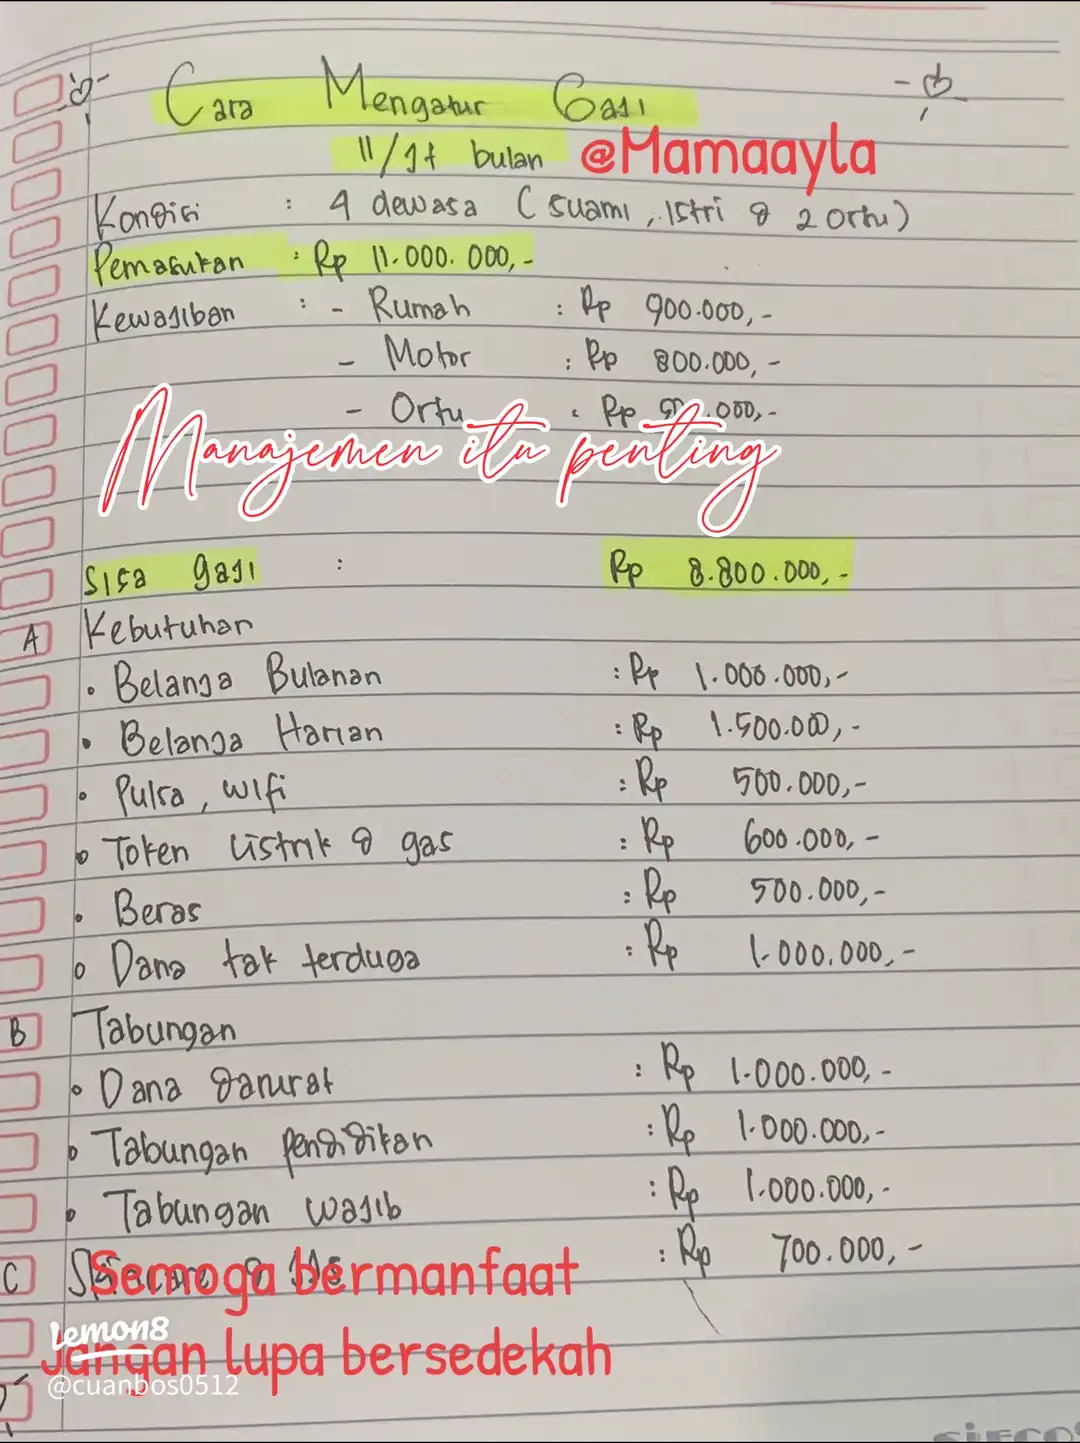 Cara Mengatur Gaji
11/jt bulan @Mamaayla
Kondisi : 4 dewasa (suami, istri & 2 ortu)
Pemasukan : Rp 11.000.000,-
Kewajiban : - Rumah : Rp 900.000,-
- Motor : Rp 800.000,-
- Ortu : Rp .000,-
Manajemen itu penting
Sisa gaji : Rp 8.800.000,-
A Kebutuhan
• Belanja Bulanan : Rp 1.000.000,-
• Belanja Harian : Rp 1.500.000,-
• Pulsa, wifi : Rp 500.000,-
• Token listrik & gas : Rp 600.000,-
• Beras : Rp 500.000,-
• Dana tak terduga : Rp 1.000.000,-
B Tabungan
• Dana darurat : Rp 1.000.000,-
• Tabungan pendidikan : Rp 1.000.000,-
• Tabungan wajib : Rp 1.000.000,-
C : Rp 700.000,-
Semoga bermanfaat
Lemon8
Jangan lupa bersedekah
@cuanbos0512